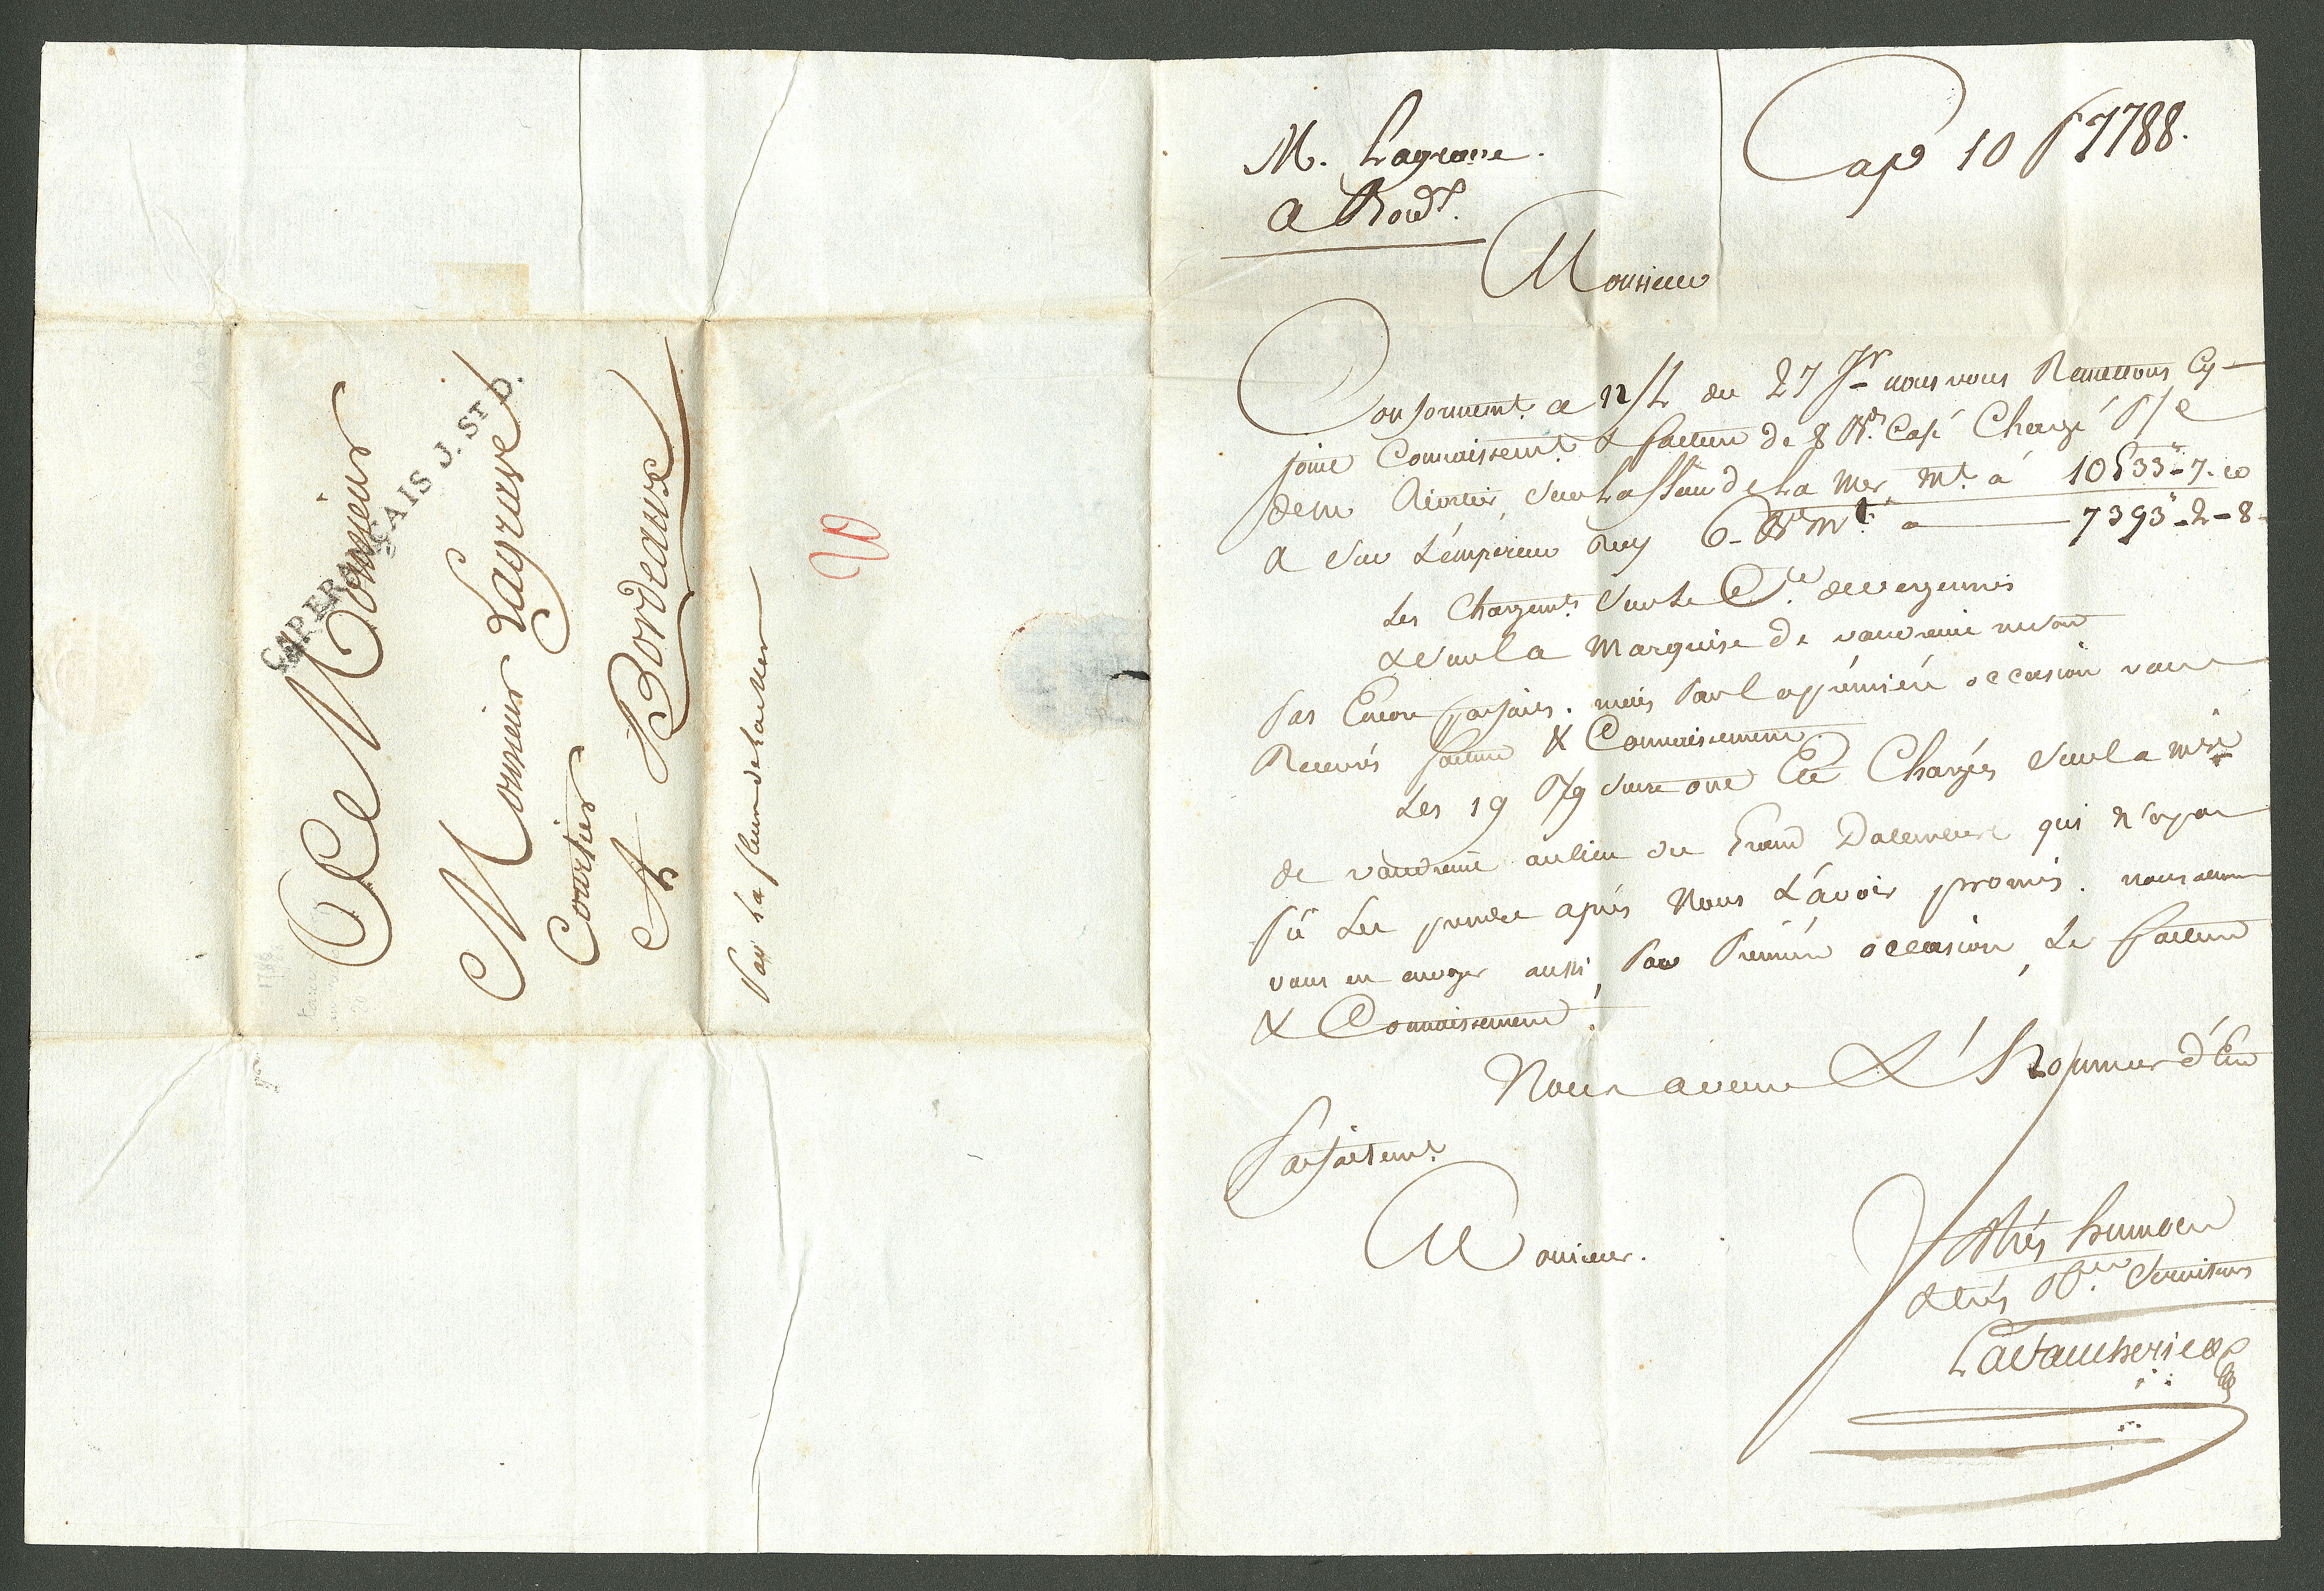 A Monsieur
Monsieur Lagrave
Courtier
A Bordeaux
CAP FRANÇAIS J. ST D.
Par La fleur de La Mer
20
M. Lagrave.
a Bord.x
Cap 10 1788.
Monsieur
Conformem.t a n/L du 27 nous vous Remettons Cy-
joint Connaissem.t & facture de 8 B.s Café Chargé P/C
dem Sur La fleur de La Mer, M.t à 10533"-7-10
& Sur L'empereur 6- B.s M.t a 7393"-2-8-
Les Chargem.ts Sur Le C.te de vergennes
& Sur La Marquise de vaudreuil ne sont
pas Encore parfaits. mais Par La première occasion vous
Recevrés facture & Connaissement
Les 19 Sucre ont Eté Chargés Sur La M.ise
de vaudreuil au lieu du Grand qui n'a pas
pû Les prendre après Nous L'avoir promis. nous
vous en envoyer aussi, Par Première occasion, Le facture
& Connaissement.
Nous avons L'honneur d'Etre
Parfaitem.t
Monsieur.
V tres humbles
& très Ob. Serviteurs